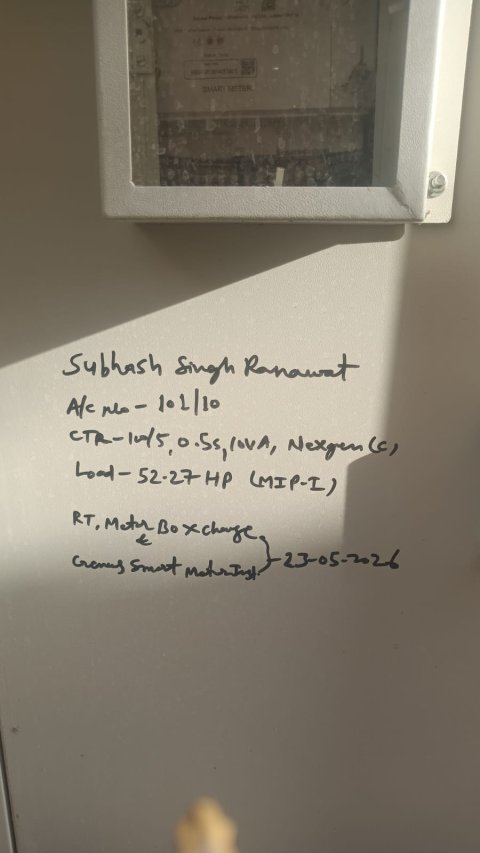 SMART METER
Subhash Singh Ranawat
A/c No - 101/10
CTR - 10/5, 0.5s, 10VA, Nexgen (C)
Load - 52.27 HP (MIP-I)
RT, Meter Box change
&
Smart Meter Inst } - 23-05-2026